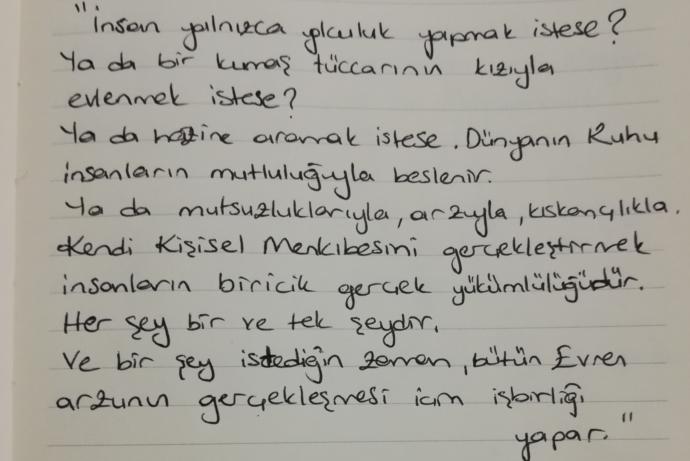 "İnsan yalnızca yolculuk yapmak istese?
Ya da bir kumaş tüccarının kızıyla
evlenmek istese?
Ya da hazine aramak istese. Dünyanın Ruhu
insanların mutluluğuyla beslenir.
Ya da mutsuzluklarıyla, arzuyla, kıskançlıkla.
Kendi Kişisel Menkıbesini gerçekleştirmek
insanların biricik gerçek yükümlülüğüdür.
Her şey bir ve tek şeydir.
Ve bir şey istediğin zaman, bütün Evren
arzunun gerçekleşmesi icin işbirliği
yapar."